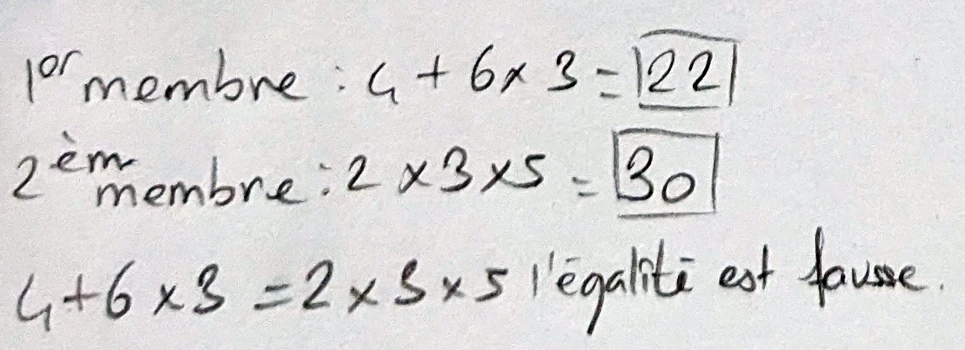 1er membre : 4 + 6 × 3 = 22
2èm membre : 2 × 3 × 5 = 30
4 + 6 × 3 = 2 × 3 × 5 l'égalité est fausse.